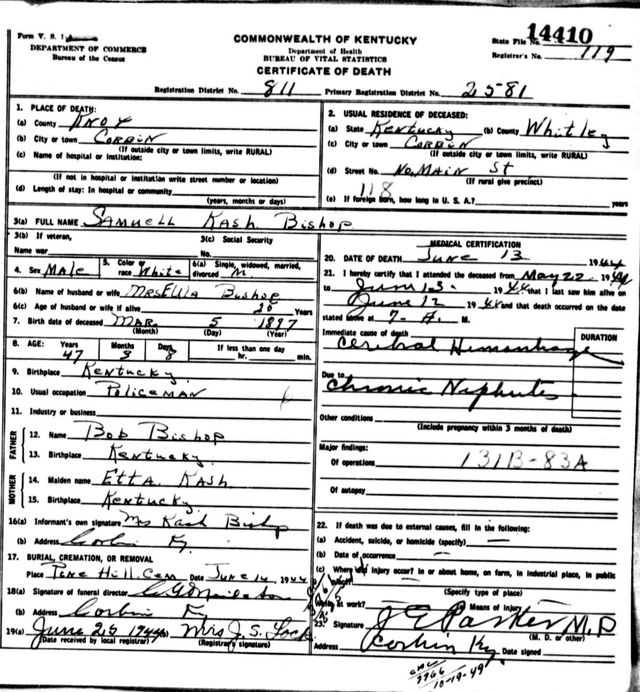 Form V. S. 1
DEPARTMENT OF COMMERCE
Bureau of the Census
COMMONWEALTH OF KENTUCKY
Department of Health
BUREAU OF VITAL STATISTICS
CERTIFICATE OF DEATH
State File No. 14410
Registrar's No. 119
Registration District No. 811 Primary Registration District No. 2581
1. PLACE OF DEATH:
(a) County Knox
(b) City or town Corbin
(If outside city or town limits, write RURAL)
(c) Name of hospital or Institution:
(If not in hospital or institution write street number or location)
(d) Length of stay: In hospital or community
(years, months or days)
2. USUAL RESIDENCE OF DECEASED:
(a) State Kentucky (b) County Whitley
(c) City or town Corbin
(If outside city or town limits, write RURAL)
(d) Street No. No. Main St
(If rural give precinct)
118
(e) If foreign born, how long in U. S. A.? years
3(a) FULL NAME Samuell Kash Bishop
3(b) If veteran, Name war
3(c) Social Security No.
4. Sex Male 5. Color or race White 6(a) Single, widowed, married, divorced M
6(b) Name of husband or wife Mrs Ella Bishop
6(c) Age of husband or wife if alive 20 Years
7. Birth date of deceased Mar. 5 1897
(Month) (Day) (Year)
8. AGE: Years 47 Months 3 Days 8 If less than one day hr. min.
9. Birthplace Kentucky
10. Usual occupation Policeman
11. Industry or business
FATHER
12. Name Bob Bishop
13. Birthplace Kentucky
MOTHER
14. Maiden name Etta Kash
15. Birthplace Kentucky
16(a) Informant's own signature Mrs Kash Bishop
(b) Address Corbin Ky.
17. BURIAL, CREMATION, OR REMOVAL
Place Pine Hill Cem Date June 14 1944
18(a) Signature of funeral director
(b) Address Corbin Ky
19(a) June 25 1944 Mrs J. S.
(Date received by local registrar) (Registrar's signature)
MEDICAL CERTIFICATION
20. DATE OF DEATH June 13 1944
21. I hereby certify that I attended the deceased from May 22 1944
to June 13 1944 that I last saw him alive on
June 12 1944 and that death occurred on the date
stated above at 7 A. M.
Immediate cause of death DURATION
Cerebral Hemorrhage
Due to
Chronic Nephrites
Other conditions
(Include pregnancy within 3 months of death)
Major findings:
Of operations 131B-83A
Of autopsy
22. If death was due to external causes, fill in the following:
(a) Accident, suicide, or homicide (specify)
(b) Date of occurrence
(c) Where did injury occur? In or about home, on farm, in industrial place, in public
place?
(Specify type of place)
While at work? (e) Means of injury
23. Signature J E Parker M.D
(M. D. or other)
Address Corbin Ky. Date signed
9966
10-19-49